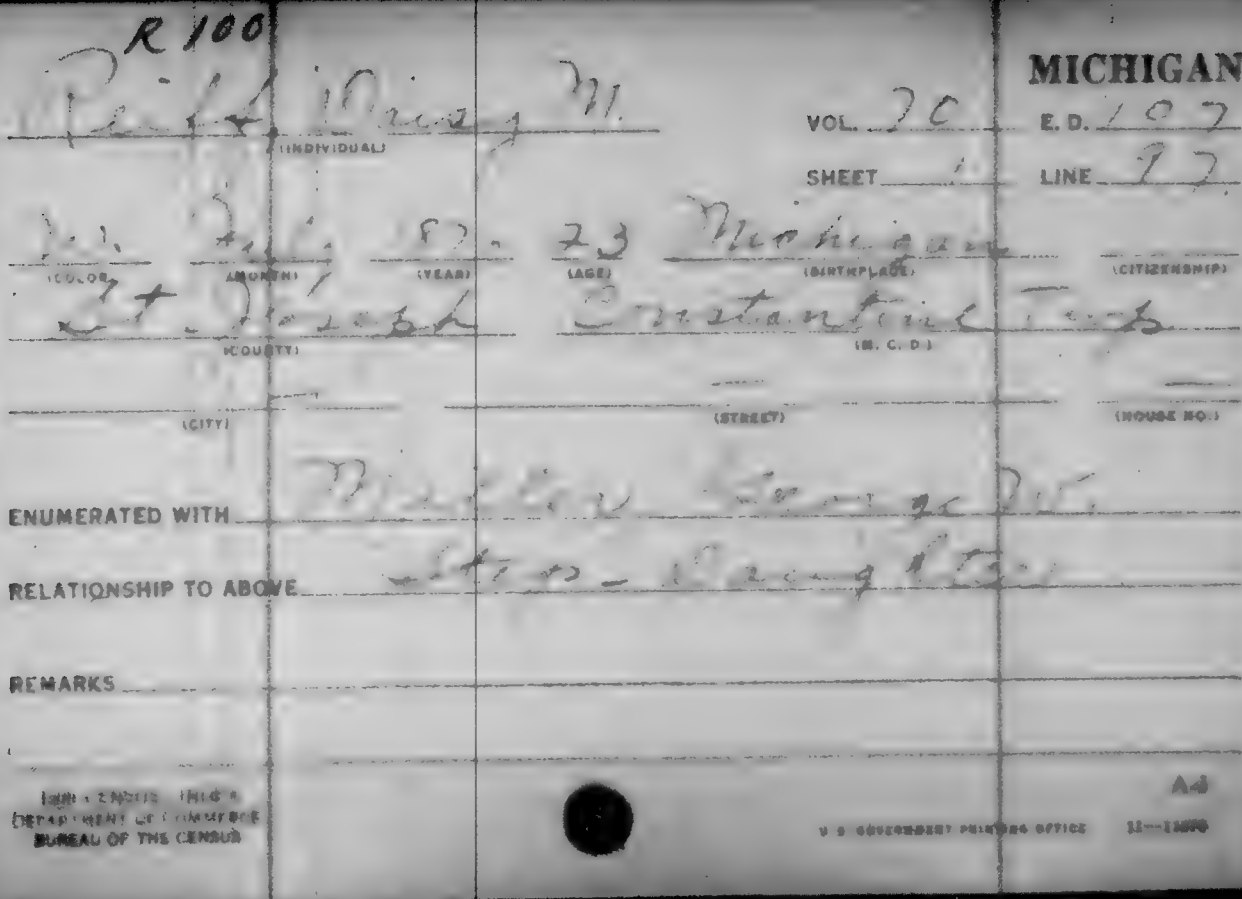 R 100
MICHIGAN
Daisy M.
(INDIVIDUAL)
VOL. 70 E. D. 107
SHEET 1 LINE 97
W. 187 23 Michigan
(COLOR) (MONTH) (YEAR) (AGE) (BIRTHPLACE) (CITIZENSHIP)
St. Joseph Constantine Twp
(COUNTY) (M. C. D.)
(CITY) (STREET) (HOUSE NO.)
ENUMERATED WITH George W.
RELATIONSHIP TO ABOVE Step-Daughter
REMARKS
DEPARTMENT OF COMMERCE
BUREAU OF THE CENSUS
U S GOVERNMENT PRINTING OFFICE